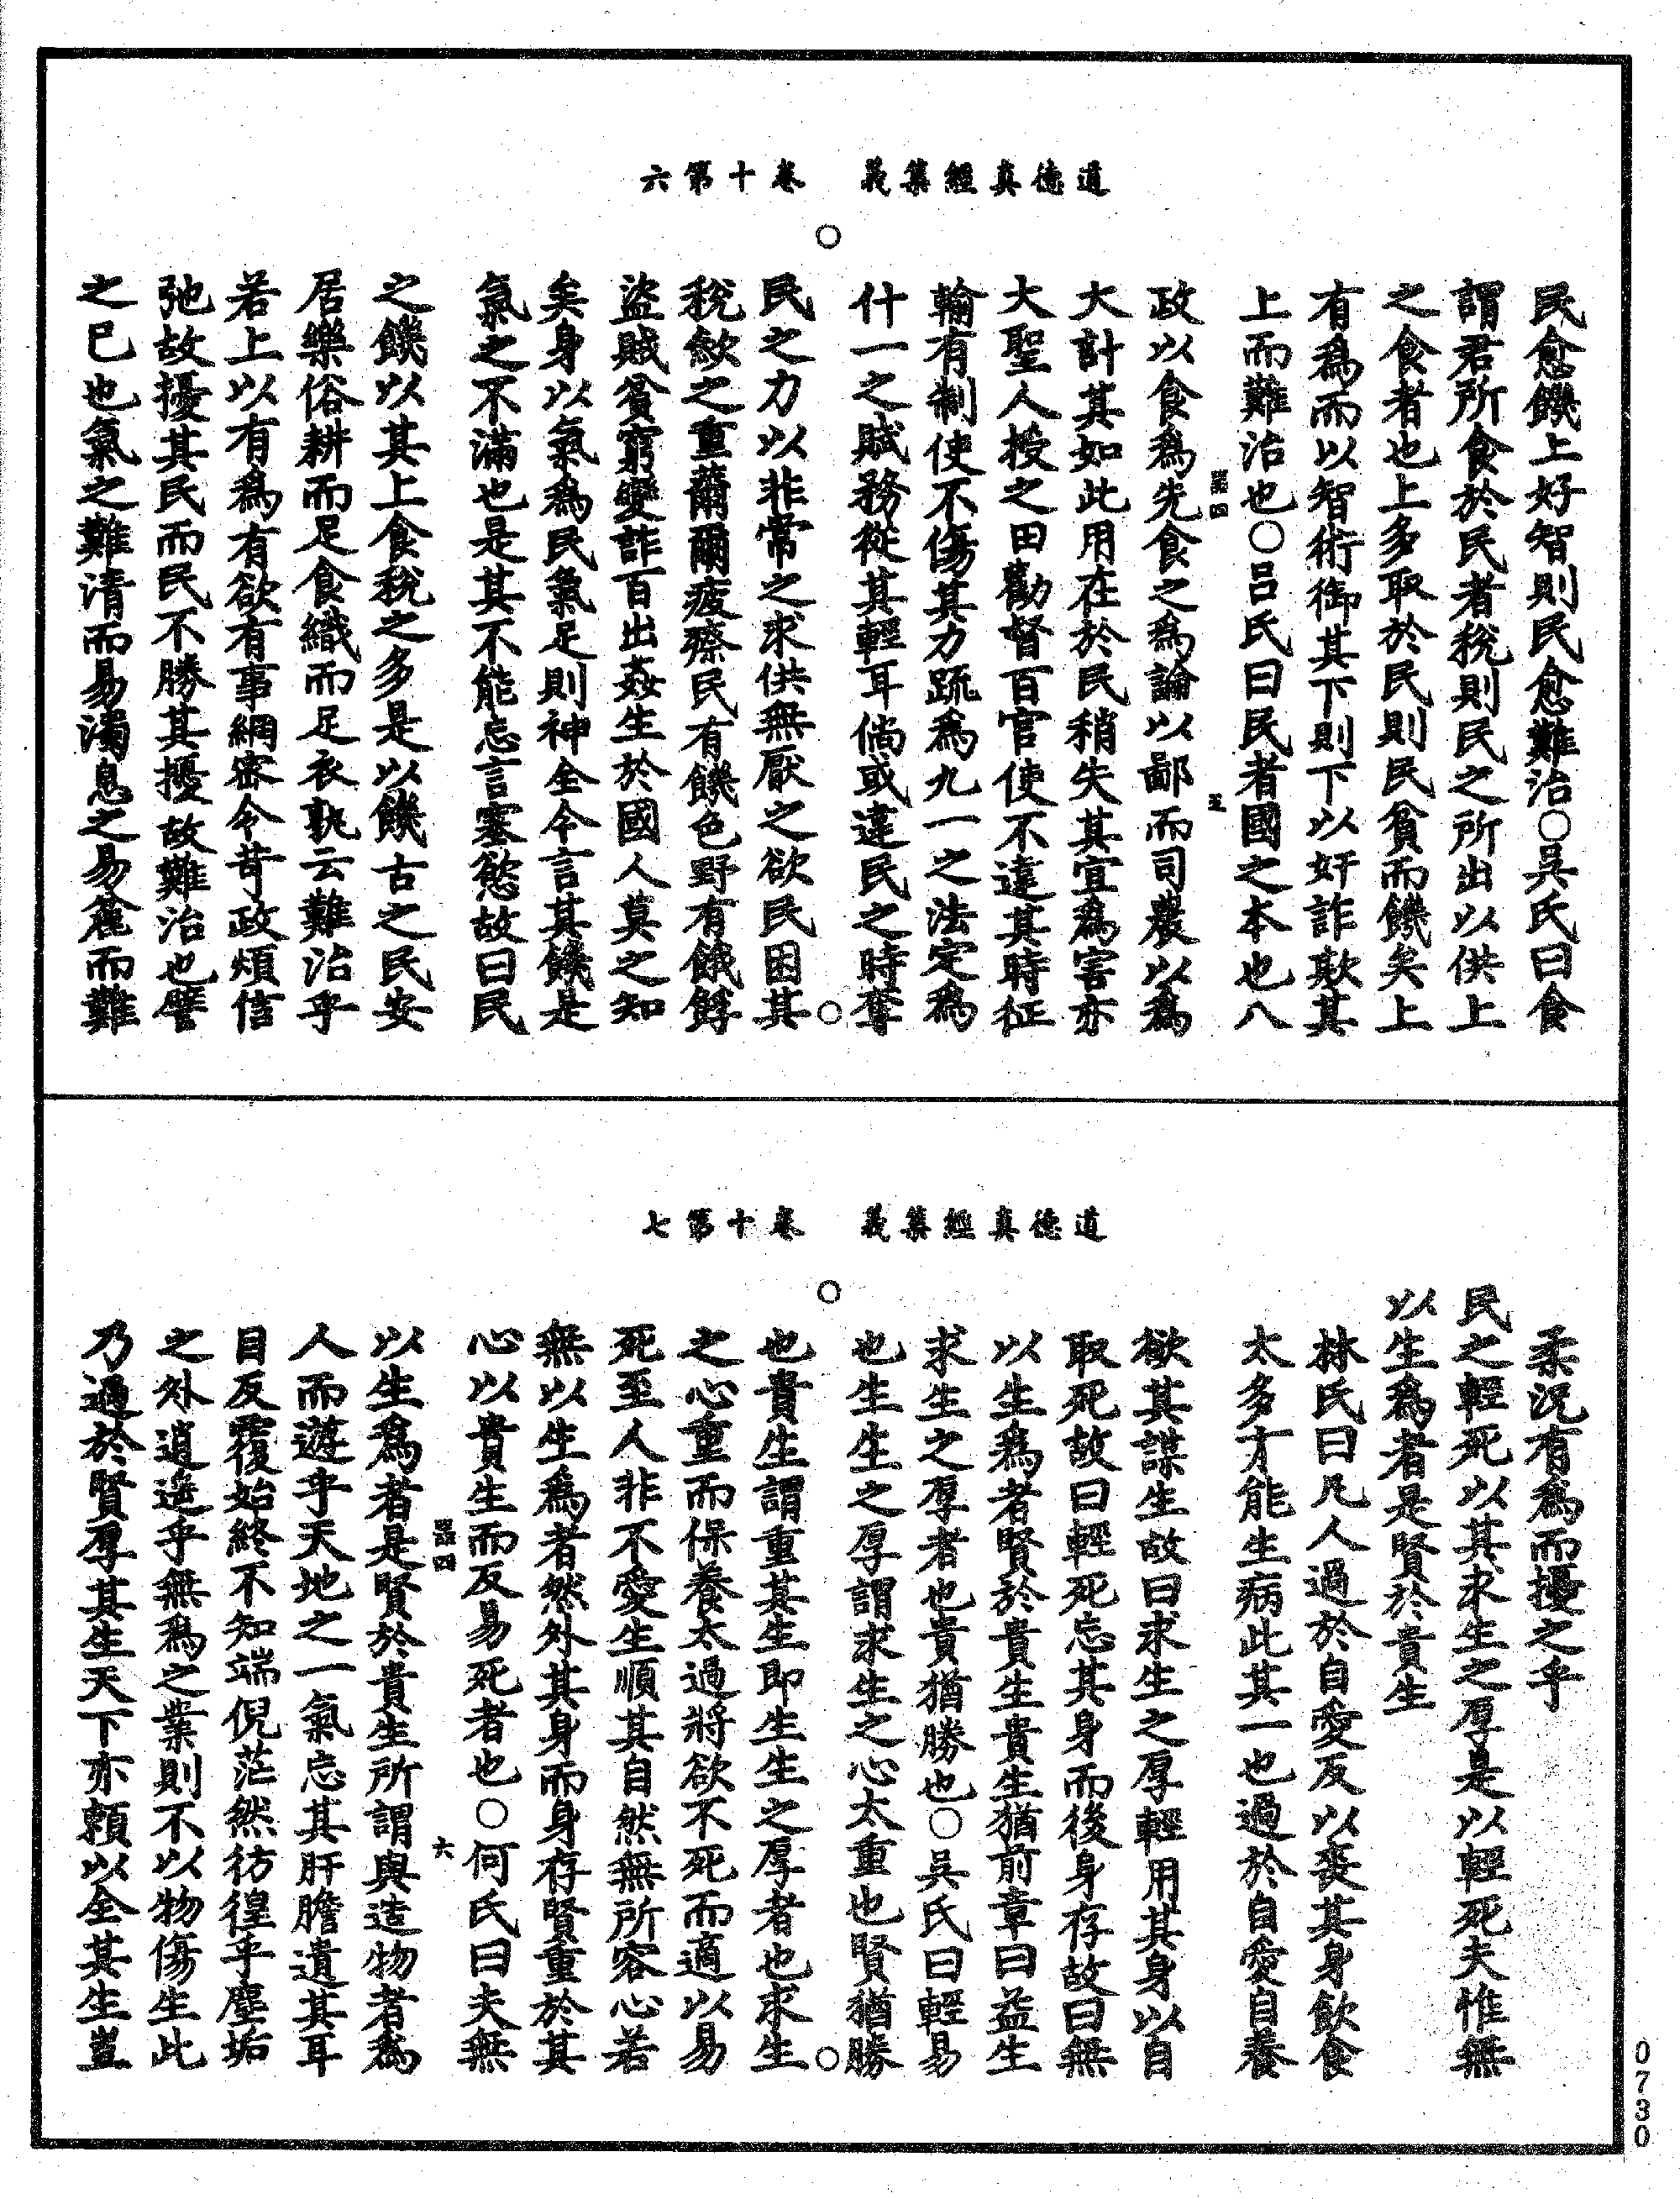 道德真經集義　卷十第六
民愈饑上好智則民愈難治○吳氏曰食
謂君所食於民者稅則民之所出以供上
之食者也上多取於民則民貧而饑矣上
有爲而以智術御其下則下以奸詐欺其
上而難治也○呂氏曰民者國之本也八
政以食爲先食之爲論以鄙而司農以爲
大計其如此用在於民稍失其宜爲害亦
大聖人授之田勸督百官使不違其時征
輸有制使不傷其力䟽爲九一之法定爲
什一之賦務從其輕耳倘或違民之時奪
民之力以非常之求供無厭之欲民困其
稅斂之重薾爾疲瘵民有饑色野有餓殍
盜賊貧窮變詐百出姦生於國人莫之知
矣身以氣爲民氣足則神全今言其饑是
氣之不滿也是其不能忘言塞慾故曰民
之饑以其上食稅之多是以饑古之民安
居樂俗耕而足食織而足衣孰云難治乎
若上以有爲有欲有事網密令苛政煩信
弛故擾其民而民不勝其擾故難治也譬
之已也氣之難清而易濁息之易麄而難
道德真經集義　卷十第七
柔況有爲而擾之乎
民之輕死以其求生之厚是以輕死夫惟無
以生爲者是賢於貴生
林氏曰凡人過於自愛反以喪其身飲食
太多才能生病此其一也過於自愛自養
欲其謀生故曰求生之厚輕用其身以自
取死故曰輕死忘其身而後身存故曰無
以生爲者賢於貴生貴生猶前章曰益生
求生之厚者也貴猶勝也○吳氏曰輕易
也生生之厚謂求生之心太重也賢猶勝
也貴生謂重其生即生生之厚者也求生
之心重而保養太過將欲不死而適以易
死至人非不愛生順其自然無所容心若
無以生爲者然外其身而身存賢重於其
心以貴生而反易死者也○何氏曰夫無
以生爲者是賢於貴生所謂與造物者爲
人而遊乎天地之一氣忘其肝膽遺其耳
目反覆始終不知端倪茫然彷徨乎塵垢
之外逍遙乎無爲之業則不以物傷生此
乃過於賢厚其生天下亦賴以全其生豈
0730